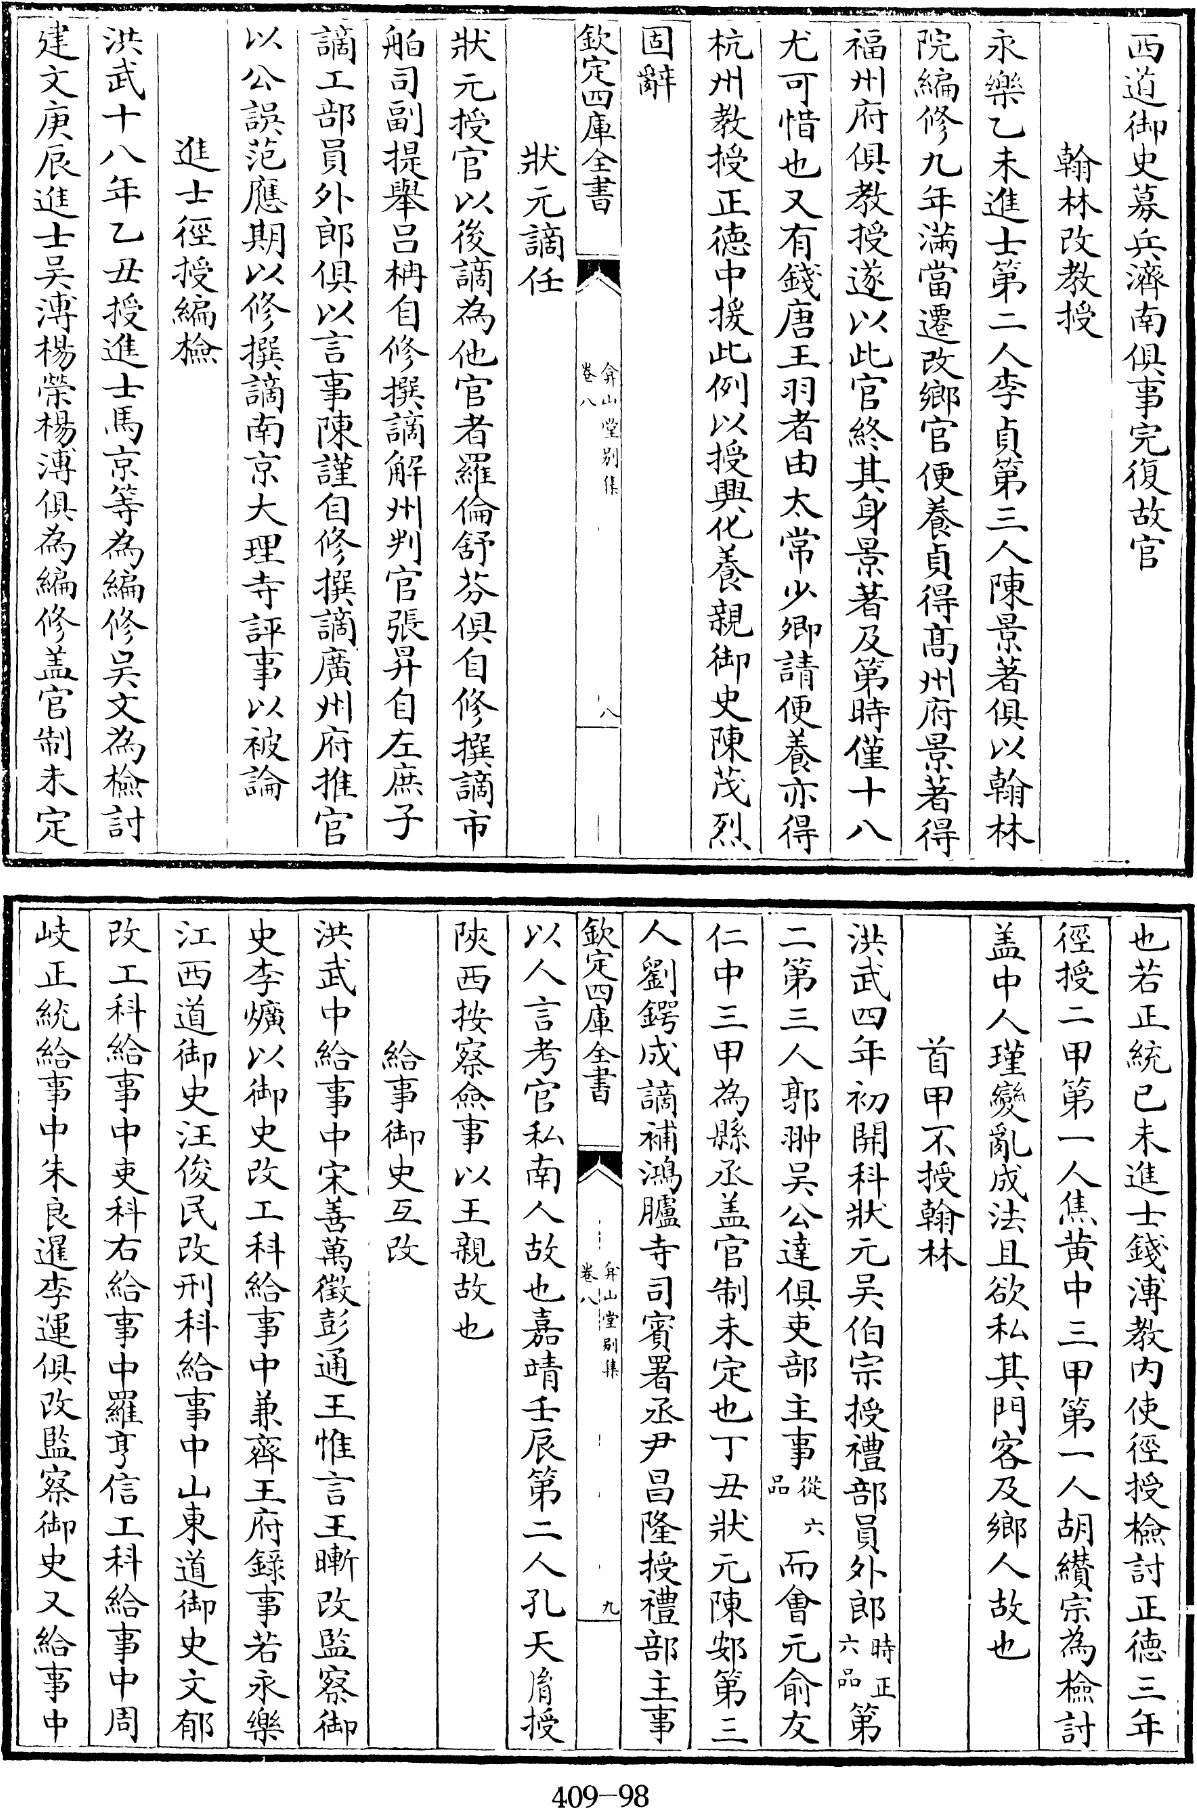 西道御史募兵濟南俱事完復故官
翰林改教授
永樂乙未進士第二人李貞第三人陳景著俱以翰林
院編修九年滿當遷改鄉官便養貞得髙州府景著得
福州府俱教授遂以此官終其身景著及第時僅十八
尤可惜也又有錢唐王羽者由太常少卿請便養亦得
杭州教授正德中援此例以授興化養親御史陳茂烈
固辭
欽定四庫全書
弇山堂别集
卷八
八
狀元謫任
狀元授官以後謫為他官者羅倫舒芬俱自修撰謫市
舶司副提舉吕柟自修撰謫解州判官張昇自左庶子
謫工部員外郎俱以言事陳謹自修撰謫廣州府推官
以公誤范應期以修撰謫南京大理寺評事以被論
進士徑授編檢
洪武十八年乙丑授進士馬京等為編修吳文為檢討
建文庚辰進士吳溥楊榮楊溥俱為編修盖官制未定
也若正統己未進士錢溥教内使徑授檢討正德三年
徑授二甲第一人焦黄中三甲第一人胡纉宗為檢討
盖中人瑾變亂成法且欲私其門客及鄉人故也
首甲不授翰林
洪武四年初開科狀元吳伯宗授禮部員外郎時正六品第
二第三人郭翀吳公達俱吏部主事從六品而會元俞友
仁中三甲為縣丞盖官制未定也丁丑狀元陳䢿第三
人劉鍔成謫補鴻臚寺司賓署丞尹昌隆授禮部主事
欽定四庫全書
弇山堂别集
卷八
九
以人言考官私南人故也嘉靖壬辰第二人孔天𦙍授
陜西按察僉事以王親故也
給事御史互改
洪武中給事中宋善萬徵彭通王惟言王㬦改監察御
史李爌以御史改工科給事中兼齊王府録事若永樂
江西道御史汪俊民改刑科給事中山東道御史文郁
改工科給事中吏科右給事中羅亨信工科給事中周
岐正統給事中朱良暹李運俱改監察御史又給事中
409-98